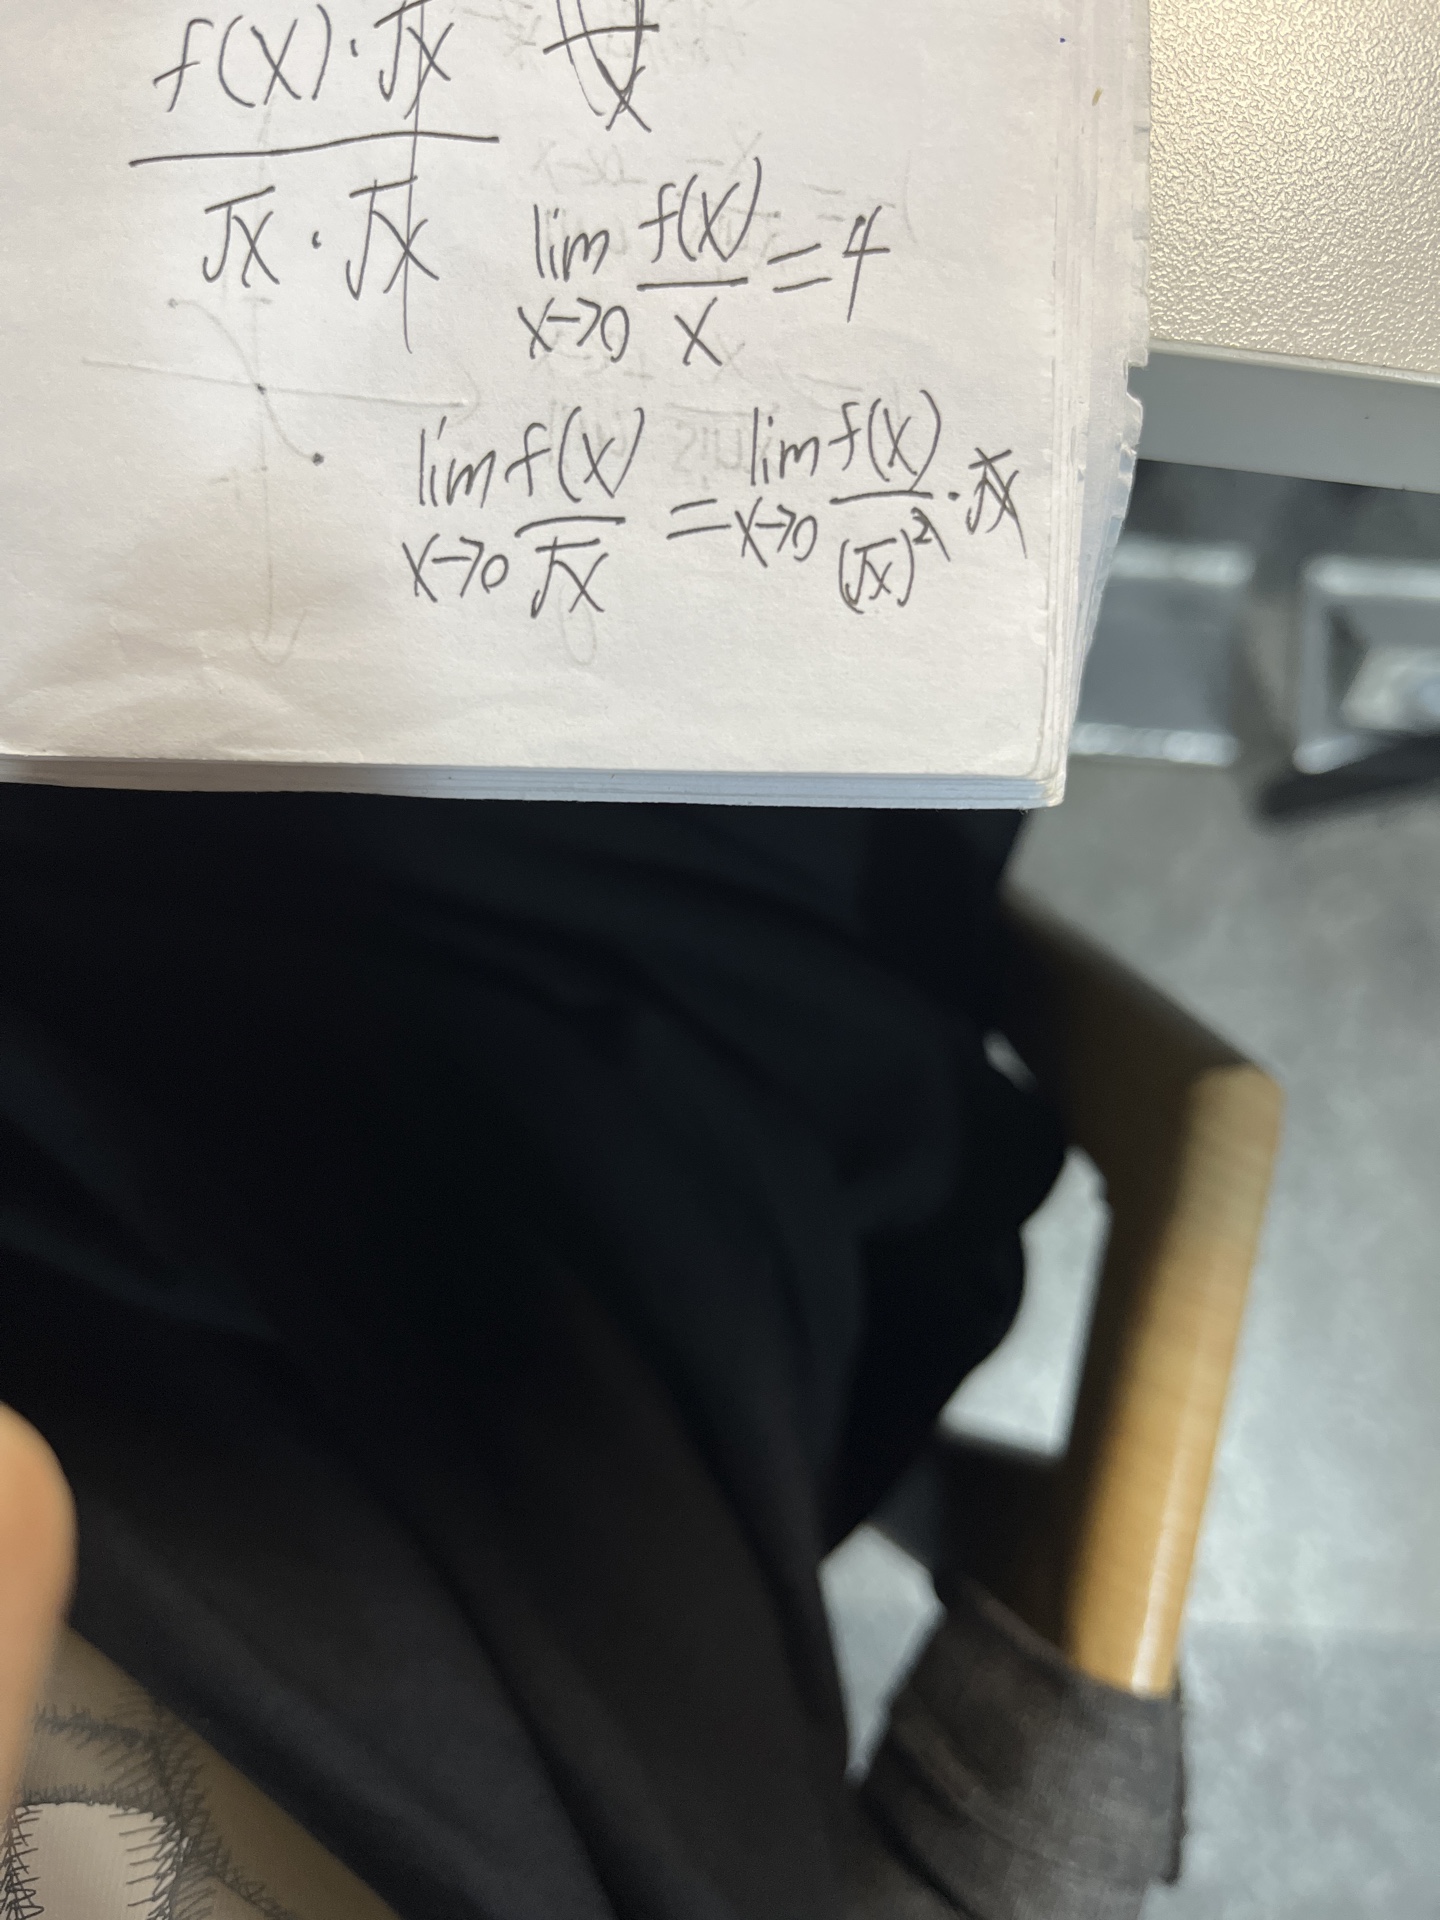 f(x)·√x
√x · √x
lim x→0 f(x)/x = 4
lim x→0 f(x)/√x = lim x→0 f(x)/(√x)² · √x